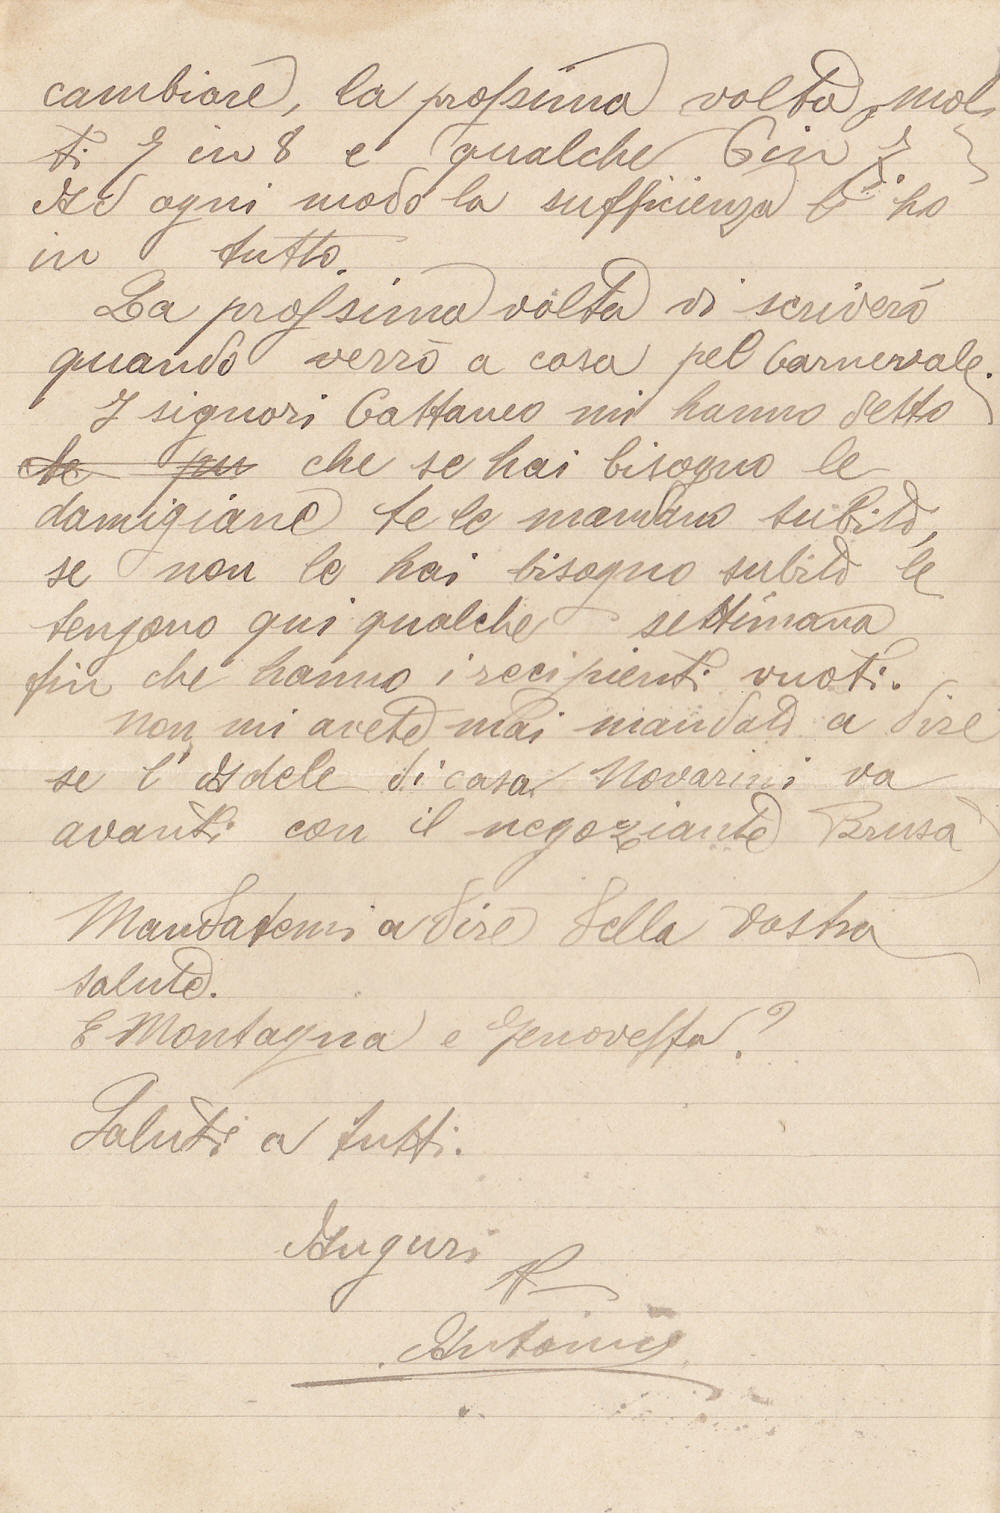 cambiare, la prossima volta, mol
ti 7 in 8 e qualche 6 in 7
Ad ogni modo la sufficienza l'ho
in tutto.
La prossima volta vi scriverò
quando verrò a casa pel Carnevale.
I signori Cattaneo mi hanno detto
che se hai bisogno le
damigiane te le mandano subito,
se non le hai bisogno subito le
tengono qui qualche settimana
fin che hanno i recipienti vuoti.
Non mi avete mai mandato a dire
se l'Adele di casa Novarini va
avanti con il negoziante Brusa
Mandatemi a dire della vostra
salute.
E Montagna e Genoveffa?
Saluti a tutti.
Auguri
Antonio